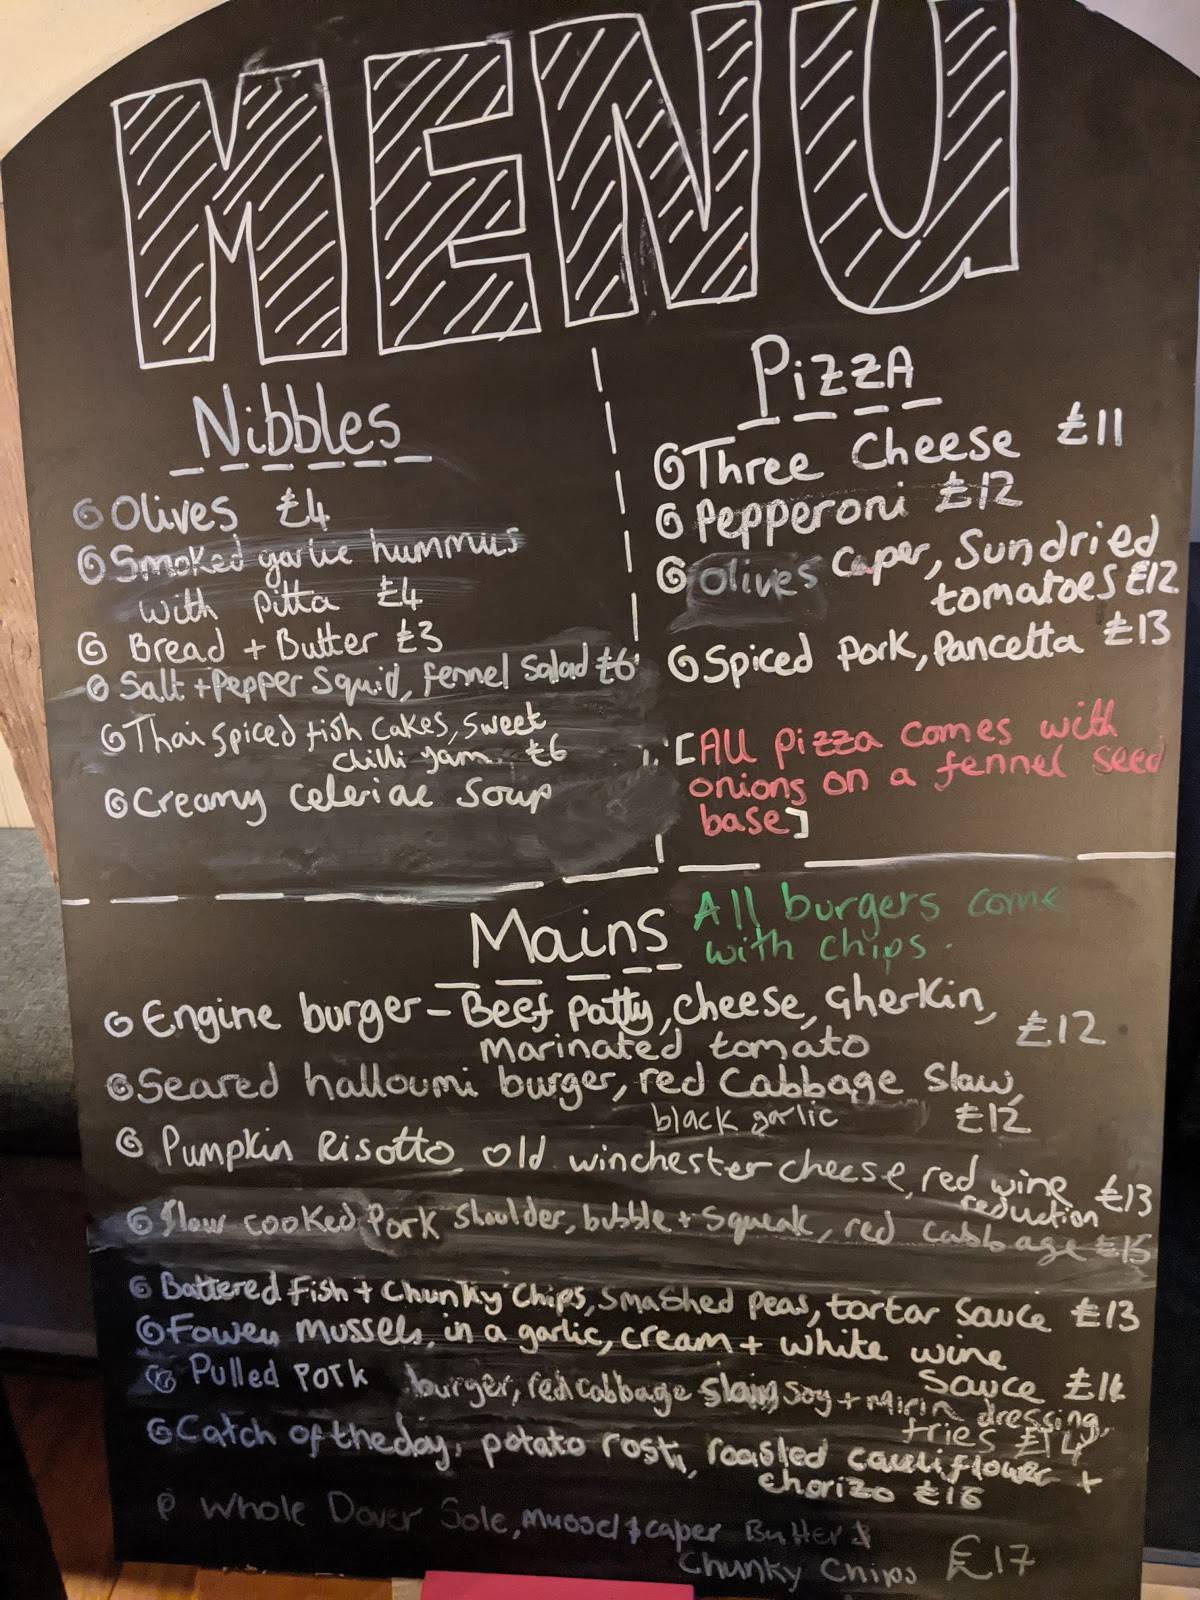 MENU
Nibbles
Olives £4
Smoked garlic hummus
with pitta £4
Bread + Butter £3
Salt + Pepper Squid, fennel Salad £6
Thai spiced fish cakes, sweet
chilli jam £6
Creamy Celeriac Soup
PizzA
Three Cheese £11
Pepperoni £12
Olives Caper, Sundried
tomatoes £12
Spiced Pork, Pancetta £13
[All pizza comes with
onions on a fennel seed
base]
Mains
All burgers come
with chips.
Engine burger - Beef patty, cheese, Gherkin,
marinated tomato £12
Seared halloumi burger, red Cabbage Slaw,
black garlic £12
Pumpkin Risotto old winchester cheese, red wine
reduction £13
Slow cooked Pork shoulder, bubble + squeak, red cabbage £15
Battered Fish + Chunky Chips, Smashed peas, tartar sauce £13
Fowey mussels, in a garlic, cream + white wine
Sauce
Pulled Pork burger, red cabbage slaw, soy + Mirin dressing,
fries £14
Catch of the day, potato rosti, roasted cauliflower +
chorizo £16
Whole Dover Sole, mussel & caper Butter &
Chunky Chips £17